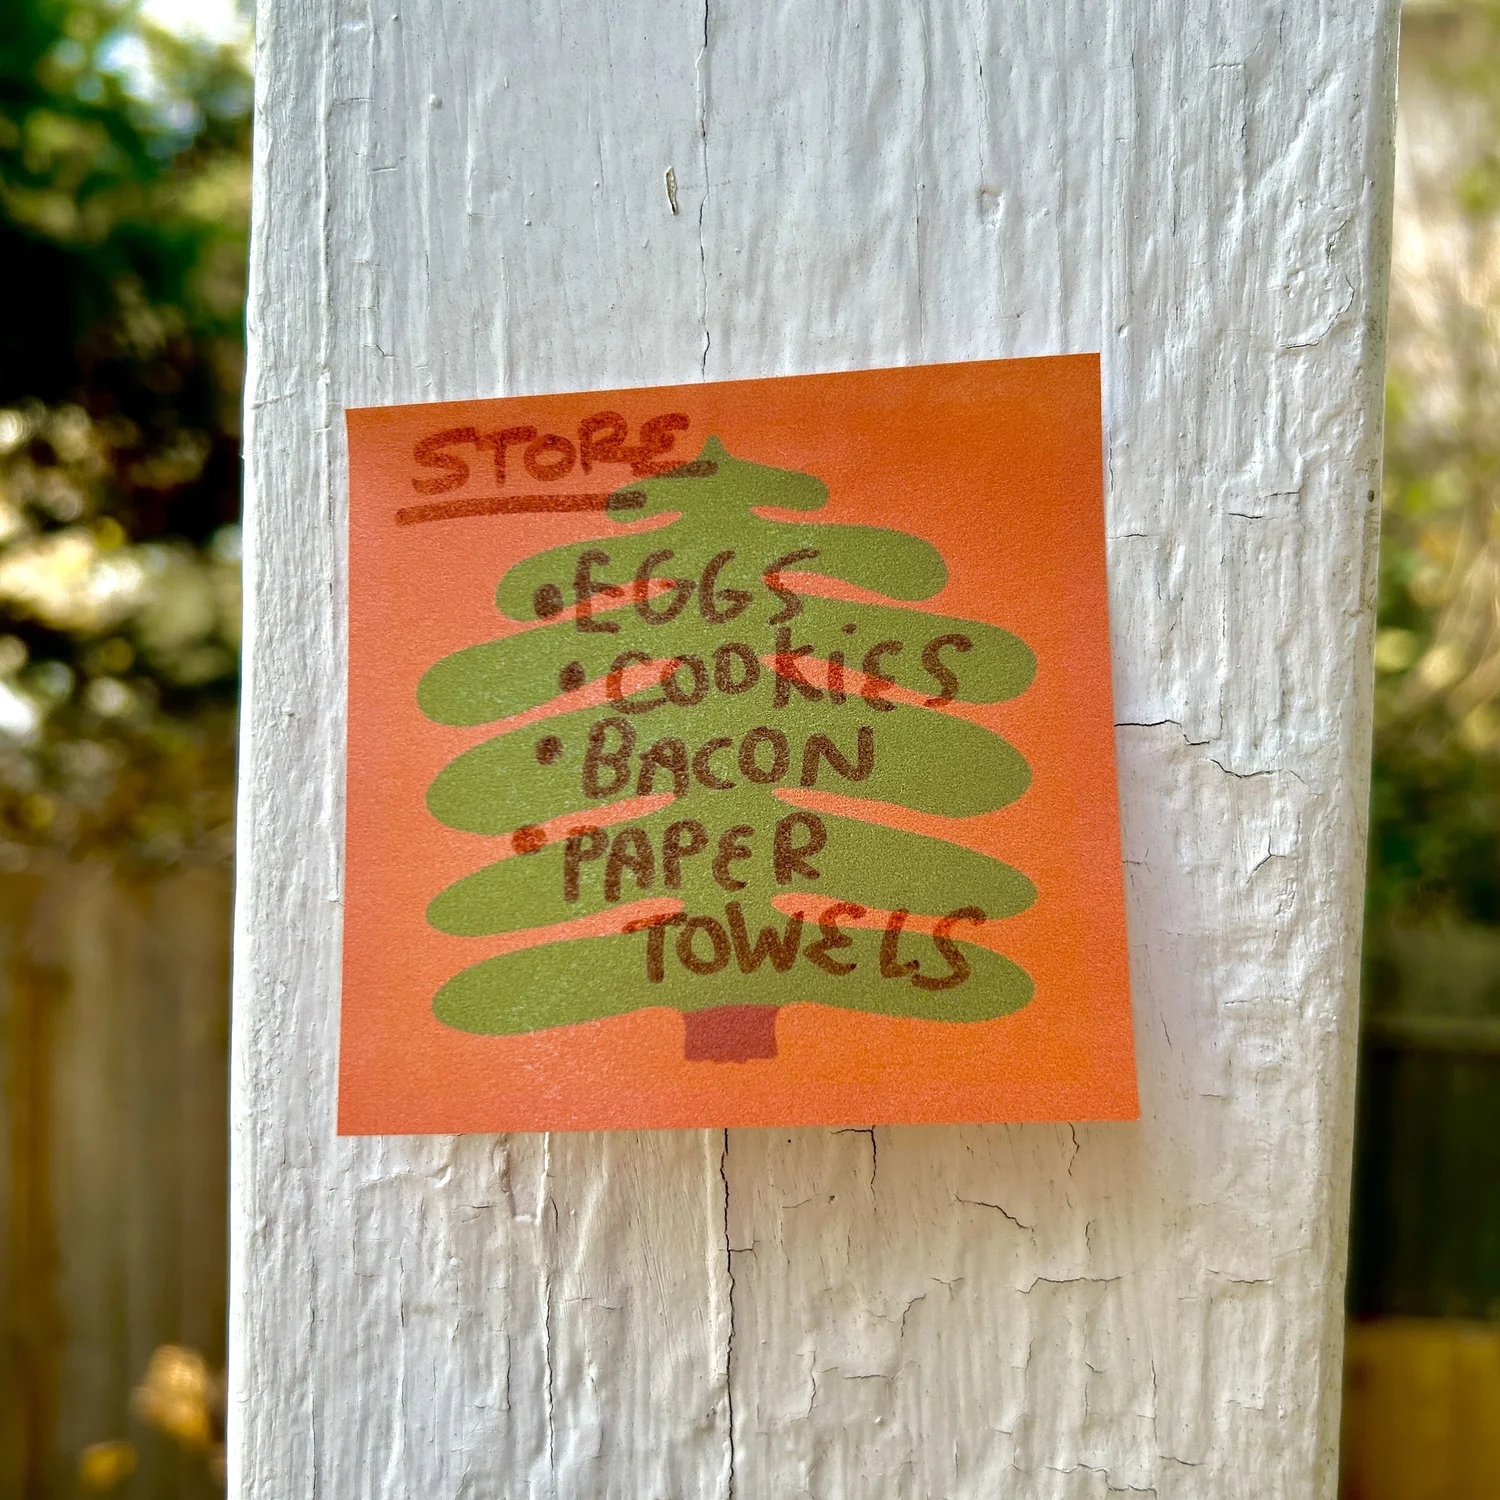 STORE
• EGGS
• COOKiES
• BACON
• PAPER
TOWELS